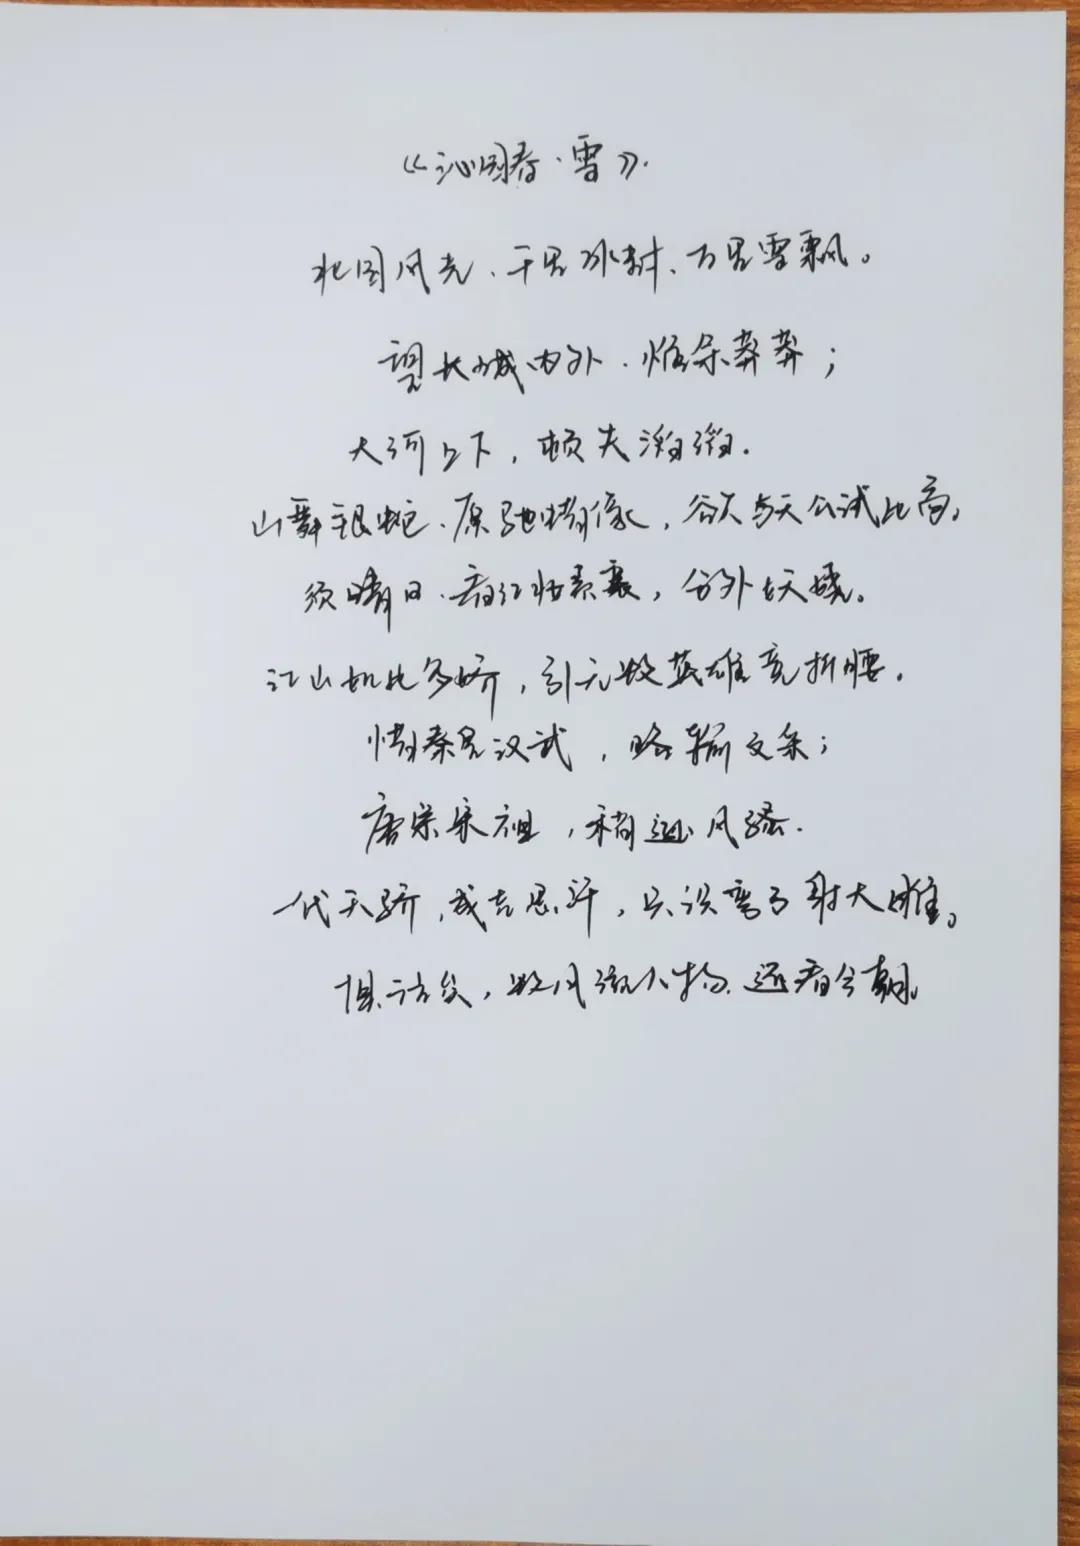 《沁园春·雪》.
北国风光、千里冰封、万里雪飘。
望长城内外.惟余莽莽;
大河上下,顿失滔滔.
山舞银蛇.原驰蜡像,欲与天公试比高。
须晴日.看红妆素裹,分外妖娆。
江山如此多娇,引无数英雄竞折腰.
惜秦皇汉武,略输文采;
唐宗宋祖,稍逊风骚.
一代天骄,成吉思汗,只识弯弓射大雕。
俱往矣,数风流人物.还看今朝.